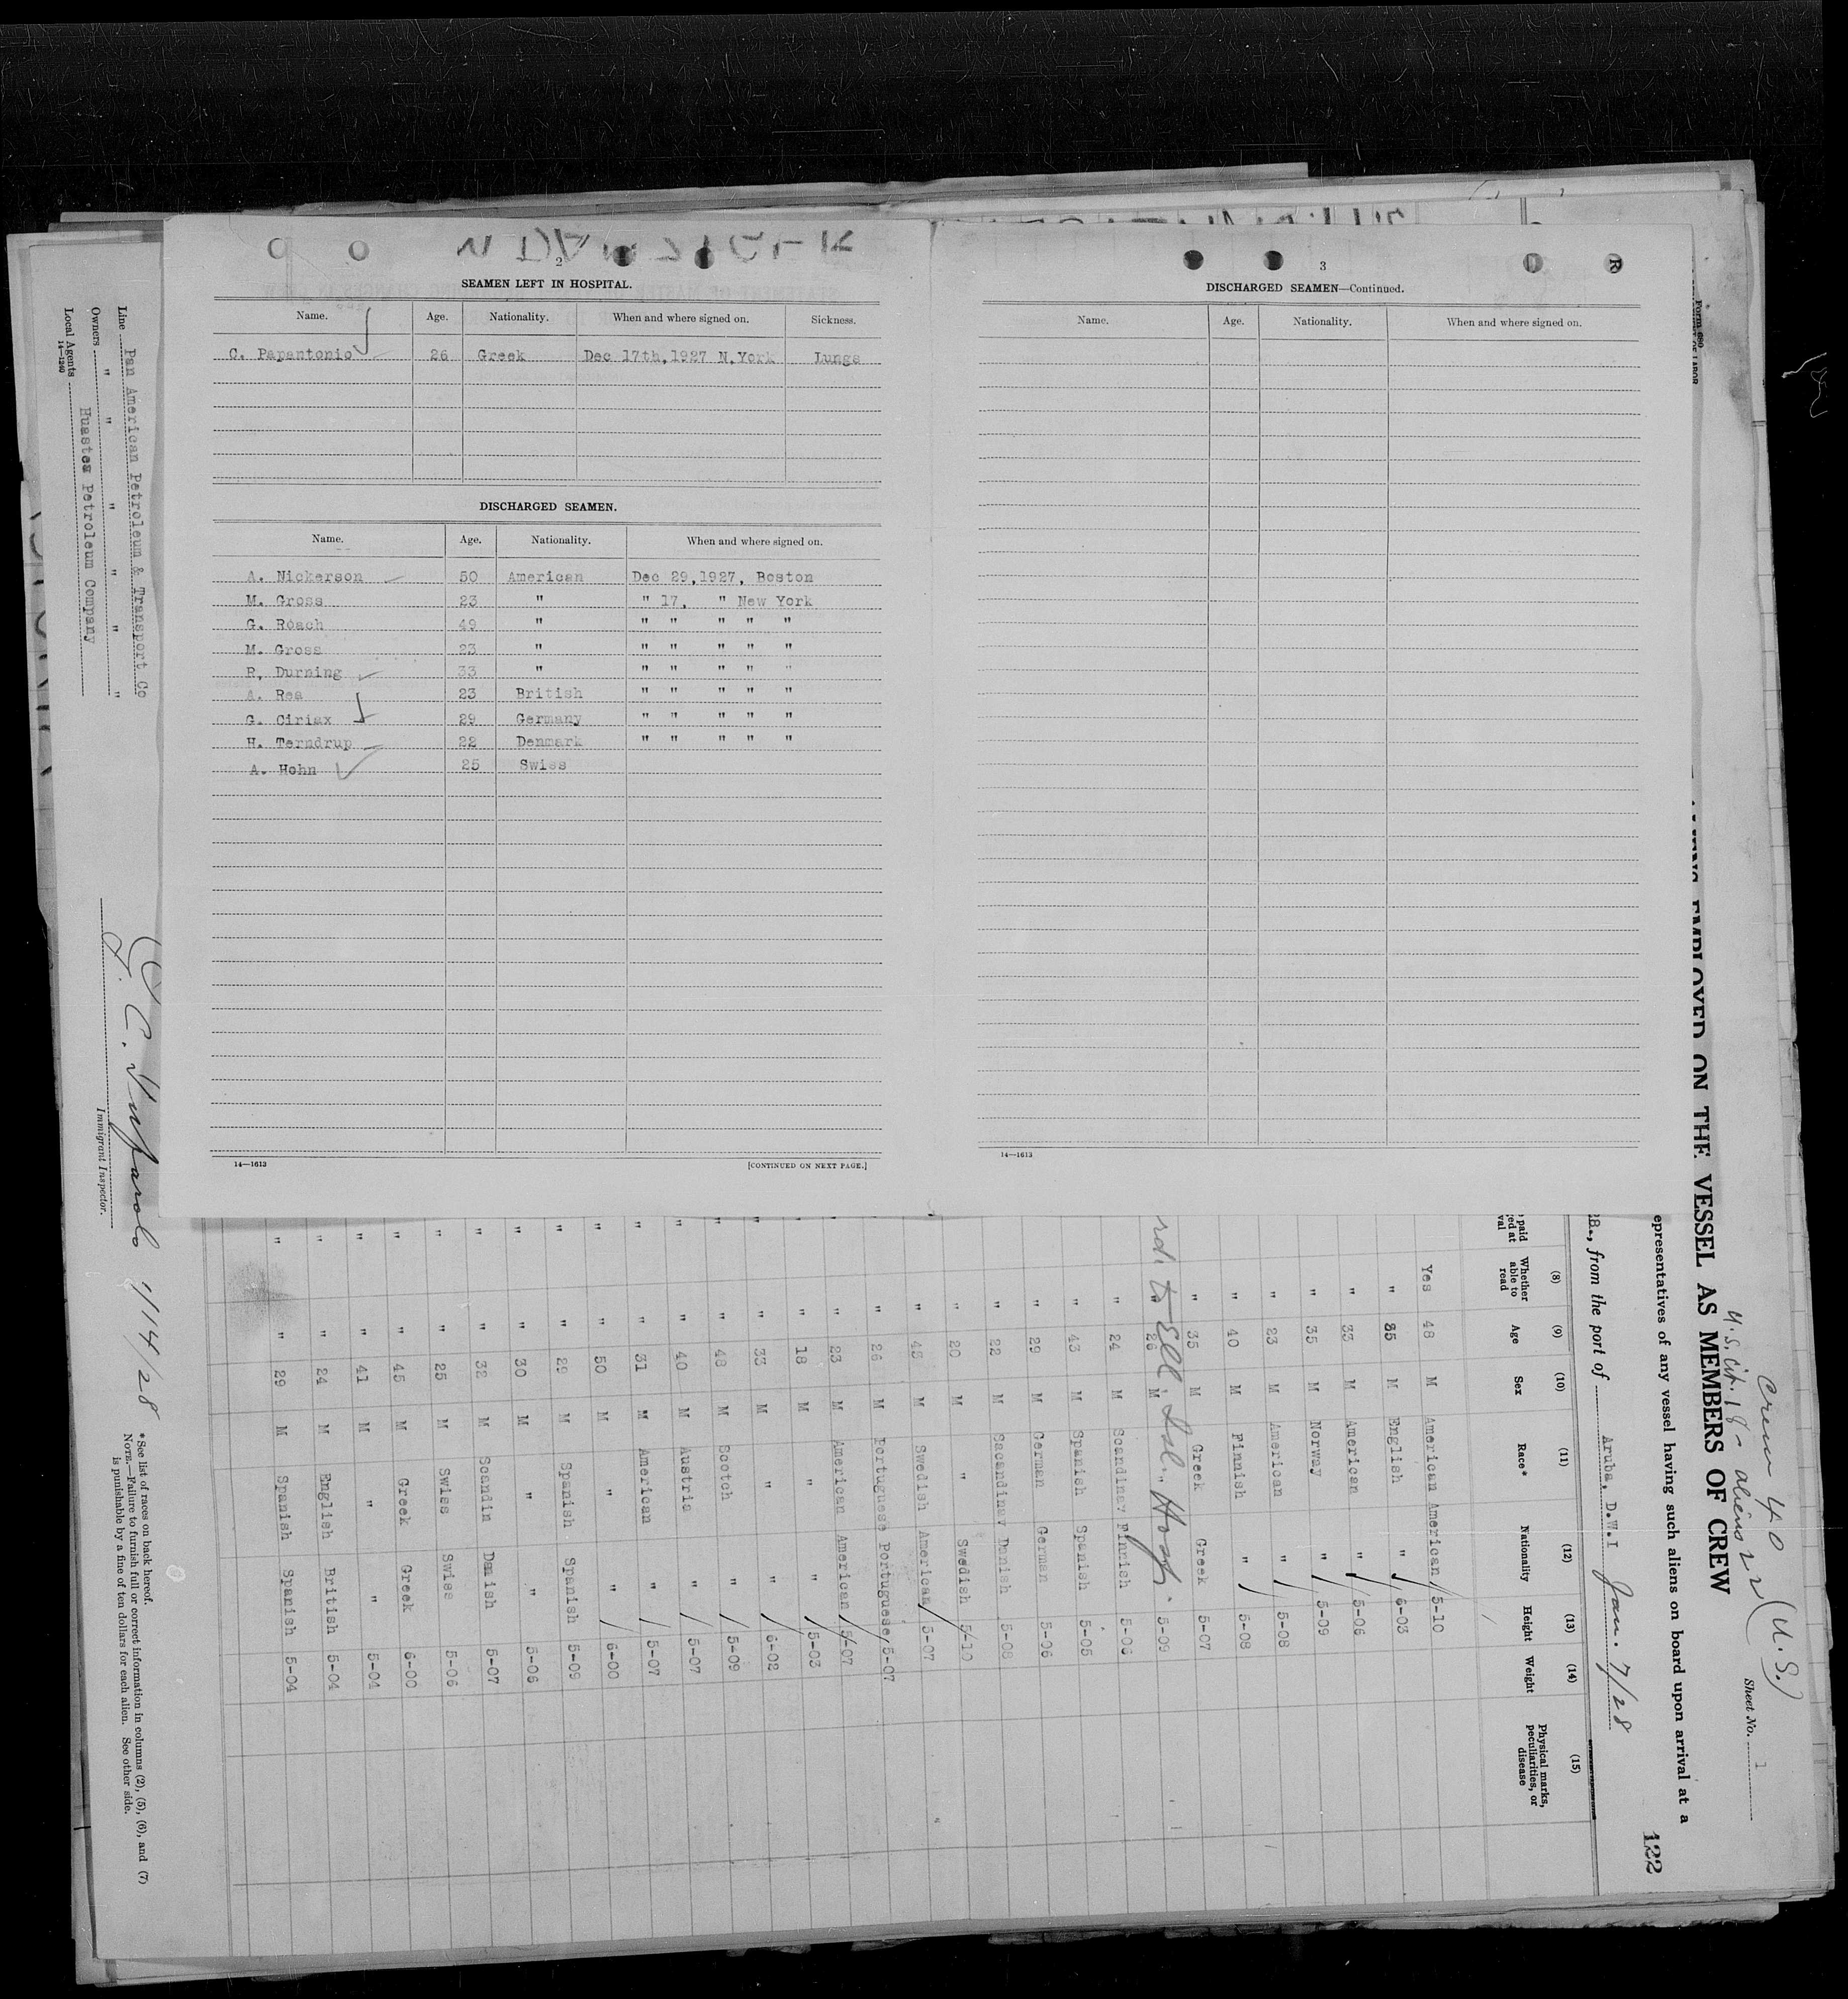 2
SEAMEN LEFT IN HOSPITAL.
Name. Age. Nationality. When and where signed on. Sickness.
C. Papantonio 26 Greek Dec 17th, 1927 N.York Lungs
DISCHARGED SEAMEN.
Name. Age. Nationality. When and where signed on.
A. Nickerson 50 American Dec 29,1927, Boston
M. Gross 23 " " 17, " New York
G. Roach 49 " " " " " "
M. Gross 23 " " " " " "
R, Durning 33 " " " " " "
A. Rea 23 British " " " " "
G. Ciriax 29 Germany " " " " "
H. Terndrup 22 Denmark " " " " "
A. Hohn 25 Swiss
14—1613 [CONTINUED ON NEXT PAGE.]
3
R
DISCHARGED SEAMEN—Continued.
Name. Age. Nationality. When and where signed on.
14—1613
Crew 40
U.S. Cit. 18 - aliens 22 (U.S.)
Sheet No. 1
EMPLOYED ON THE VESSEL AS MEMBERS OF CREW
epresentatives of any vessel having such aliens on board upon arrival at a
122
, from the port of Aruba, D.W.I Jan. 7/28
(8) (9) (10) (11) (12) (13) (14) (15)
Whether able to read Age Sex Race* Nationality Height Weight Physical marks, peculiarities, or disease
Yes 48 M American American 5-10
" 35 M English " 6-03
" 33 M American " 5-06
" 35 M Norway " 5-09
" 23 M American " 5-08
" 40 M Finnish " 5-08
" 35 M Greek Greek 5-07
" 26 M " 5-09
rd. to Ell. Isl. Hosp.
" 24 M Scandinav Finnish 5-06
" 43 M Spanish Spanish 5-05
" 29 M German German 5-06
" 22 M Sacandinav Danish 5-08
" 20 M " Swedish 5-10
" 45 M Swedish American 5-07
" 26 M Portuguese Portuguese 5-07
" 23 M American American 5-07
" 18 M " " 5-03
" 33 M " " 6-02
" 48 M Scotch " 5-09
" 40 M Austria " 5-07
" 31 M American " 5-07
" 50 M " " 6-00
" 29 M Spanish Spanish 5-09
" 30 M " " 5-06
" 32 M Scandin Danish 5-07
" 25 M Swiss Swiss 5-06
" 45 M Greek Greek 6-00
" 41 M " " 5-04
" 24 M English British 5-04
" 29 M Spanish Spanish 5-04
Line Pan American Petroleum & Transport Co
Owners " " " " " "
Local Agents Huasteca Petroleum Company
14—1240
1/14/28
Immigrant Inspector.
*See list of races on back hereof.
NOTE.—Failure to furnish full or correct information in columns (2), (5), (6), and (7)
is punishable by a fine of ten dollars for each alien. See other side.